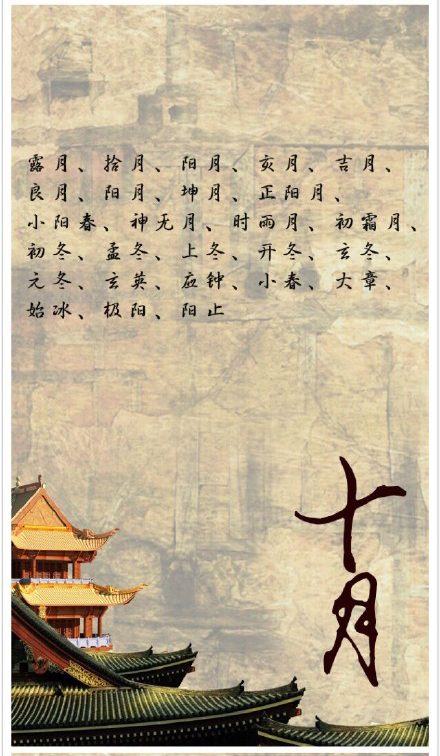 露月、拾月、阳月、亥月、吉月、
良月、阳月、坤月、正阳月、
小阳春、神无月、时雨月、初霜月、
初冬、孟冬、上冬、开冬、玄冬、
元冬、玄英、应钟、小春、大章、
始冰、极阳、阳止
十月